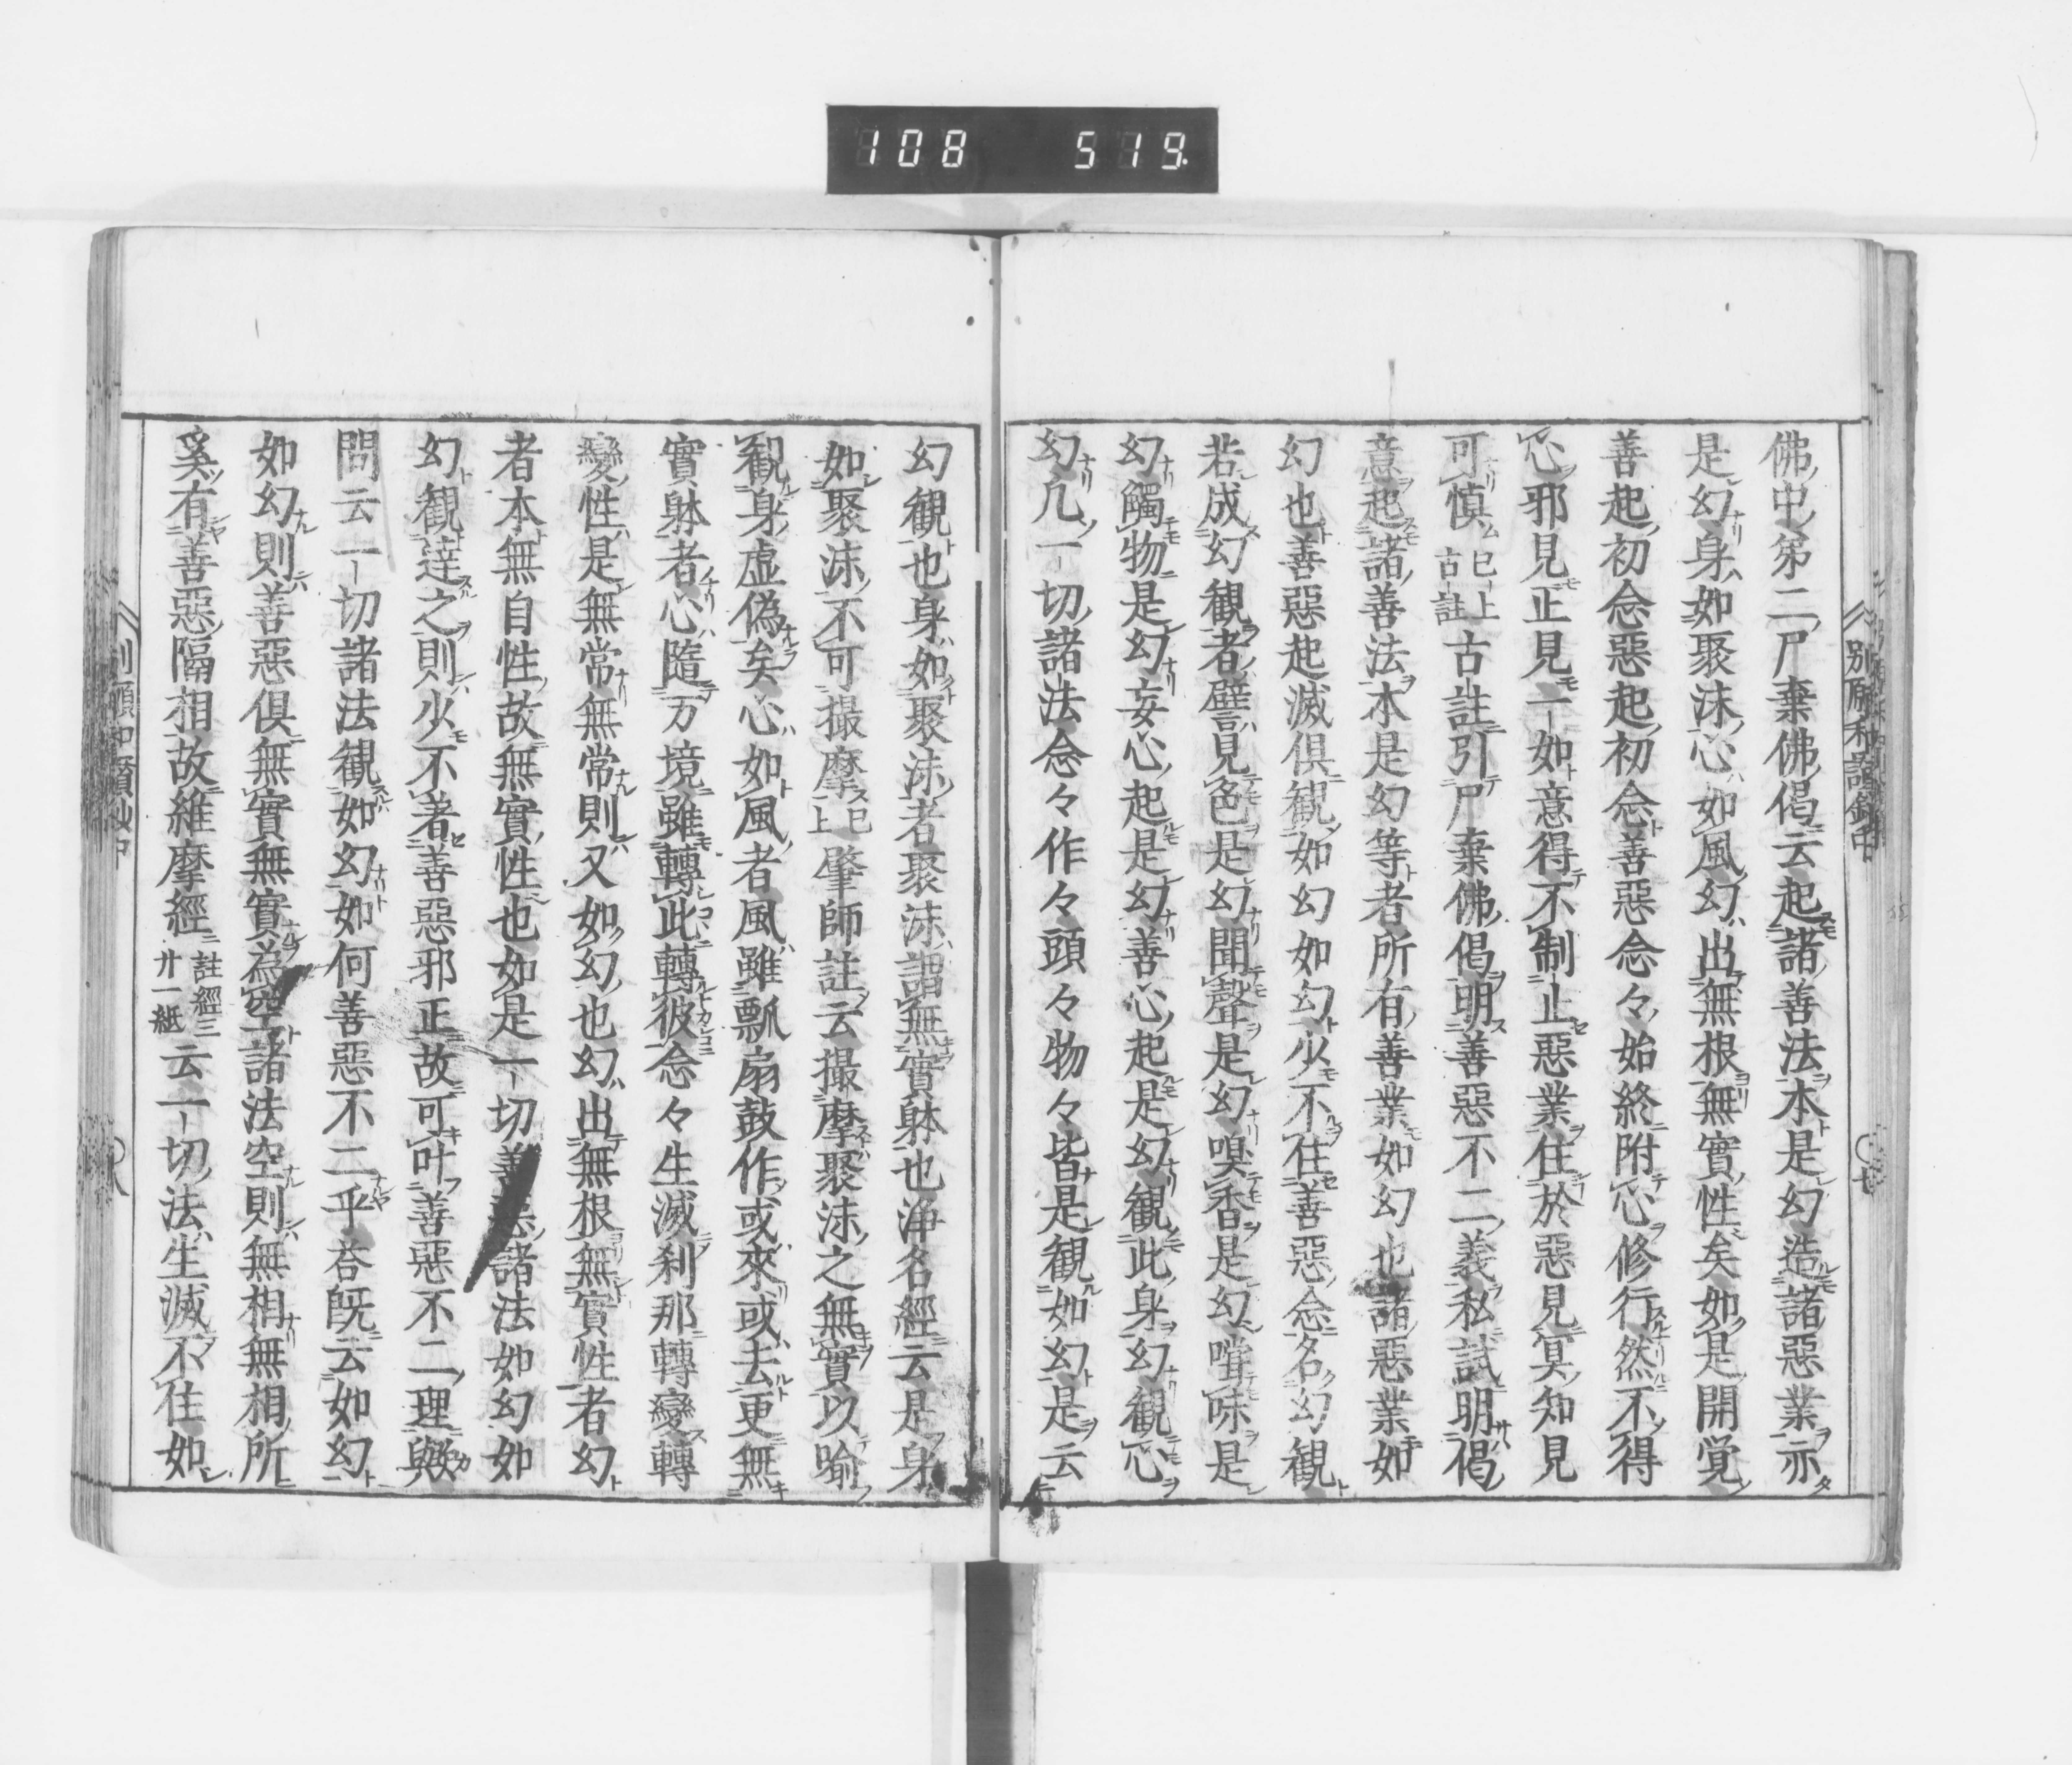 108 519.
佛中第二尸棄佛偈云起諸善法本是幻造諸惡業亦
是幻身如聚沫心如風幻出無根無實性矣如是開覚
善起初念惡起初念善惡念々始終附心修行然不得
心邪見正見一如意得不制止惡業住於惡見冥知見
可慎已上古註古註引尸棄佛偈明善惡不二義私試明偈
意起諸善法本是幻等者所有善業如幻也諸惡業如
幻也善惡起滅俱観如幻如幻少不住善惡念名幻観
若成幻観者譬見色是幻聞聲是幻嗅香是幻嘗味是
幻觸物是幻妄心起是幻善心起是幻観此身幻観心
幻凡一切諸法念々作々頭々物々皆是観如幻是云
幻観也身如聚沫者聚沫謂無實躰也淨名經云是身
如聚沫不可撮摩已上肇師註云撮摩聚沫之無實以喻
観身虚偽矣心如風者風雖飄扇鼓作或來或去更無
實躰者心隨万境雖轉此轉彼念々生滅刹那轉變轉
變性是無常無常則又如幻也幻出無根無實性者幻
者本無自性故無實性也如是一切善惡諸法如幻如
幻觀達之則少不著善惡邪正故可叶善惡不二理歟
問云一切諸法觀如幻如何善惡不二乎答既云如幻
如幻則善惡俱無實無實為空諸法空則無相無相所
奚有善惡隔相故維摩經註經三廾一紙云一切法生滅不住如